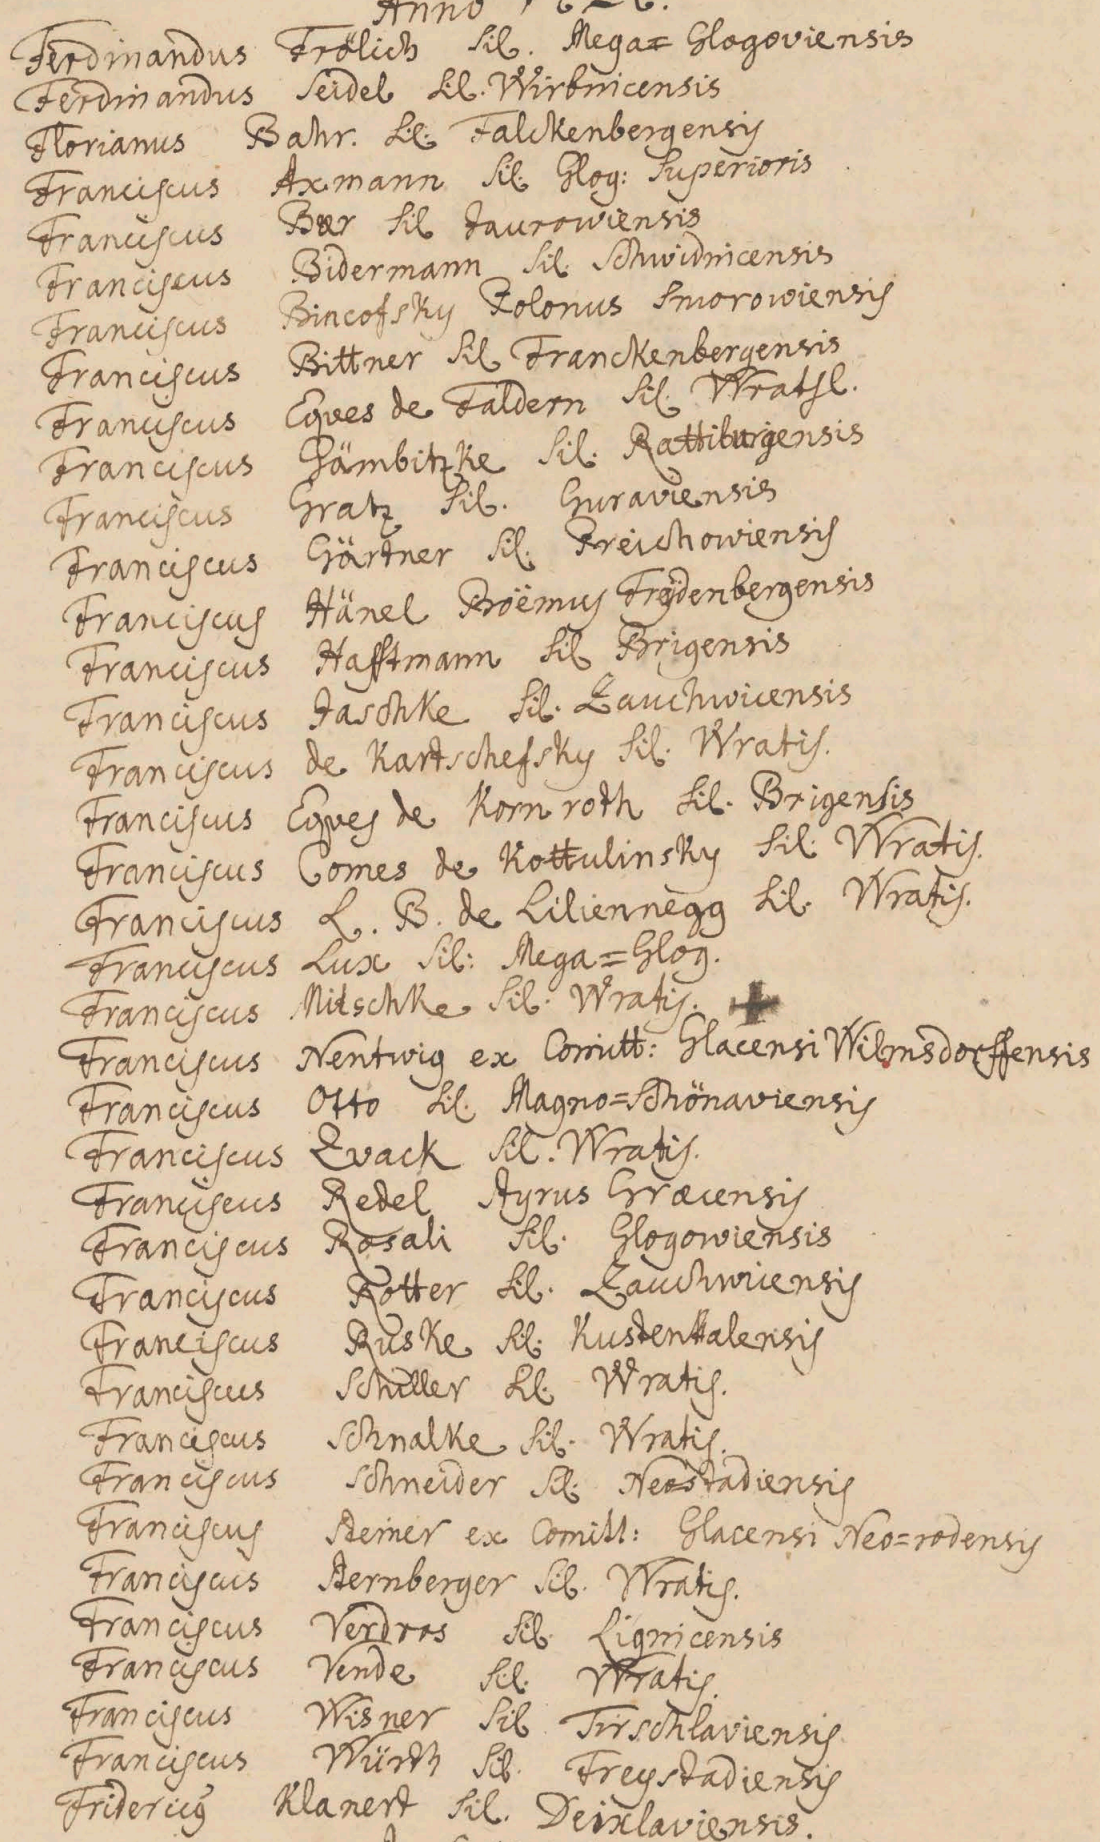 Anno
Ferdinandus Frölich Sil. Mega= Glogoviensis
Ferdinandus Seidel Sil. Wirbnicensis
Florianus Bahr. Sil. Falckenbergensis
Franciscus Axmann Sil. Glog: Superioris
Franciscus Beer Sil Jaurowiensis
Franciscus Bidermann Sil. Schwidnicensis
Franciscus Bincofsky Polonus Smorowiensis
Franciscus Bittner Sil Franckenbergensis
Franciscus Eques de Faldern Sil. Wratsl.
Franciscus Gämbitzke Sil. Rattiburgensis
Franciscus Gratz Sil. Guraviensis
Franciscus Gärtner Sil. Preichowiensis
Franciscus Hänel Boëmus Freydenbergensis
Franciscus Hafftmann Sil Brigensis
Franciscus Jaschke Sil. Zauchwicensis
Franciscus de Kartschefsky Sil. Wratis.
Franciscus Eques de Kornroth Sil. Brigensis
Franciscus Comes de Kottulinsky Sil. Wratis.
Franciscus L. B. de Liliennegg Sil. Wratis.
Franciscus Lux Sil: Mega=Glog.
Franciscus Mitschke Sil. Wratis. +
Franciscus Nentwig ex Comitt: Glacensi Wilmsdorffensis
Franciscus Otto Sil. Magno=Schönaviensis
Franciscus Qvack Sil. Wratis.
Franciscus Redel Styrus Græcensis
Franciscus Rosali Sil. Glogowiensis
Franciscus Rotter Sil. Zauchwicensis
Franciscus Ruske Sil. Kustenthalensis
Franciscus Schiller Sil. Wratis.
Franciscus Schnalke Sil. Wratis.
Franciscus Schneider Sil. Neostadiensis
Franciscus Steiner ex Comitt: Glacensi Neo=rodensis
Franciscus Sternberger Sil. Wratis.
Franciscus Verdros Sil. Lignicensis
Franciscus Vende Sil. Wratis.
Franciscus Wisner Sil Tirschlaviensis
Franciscus Würth Sil. Freystadiensis
Fridericus Klanert Sil. Deixlaviensis.